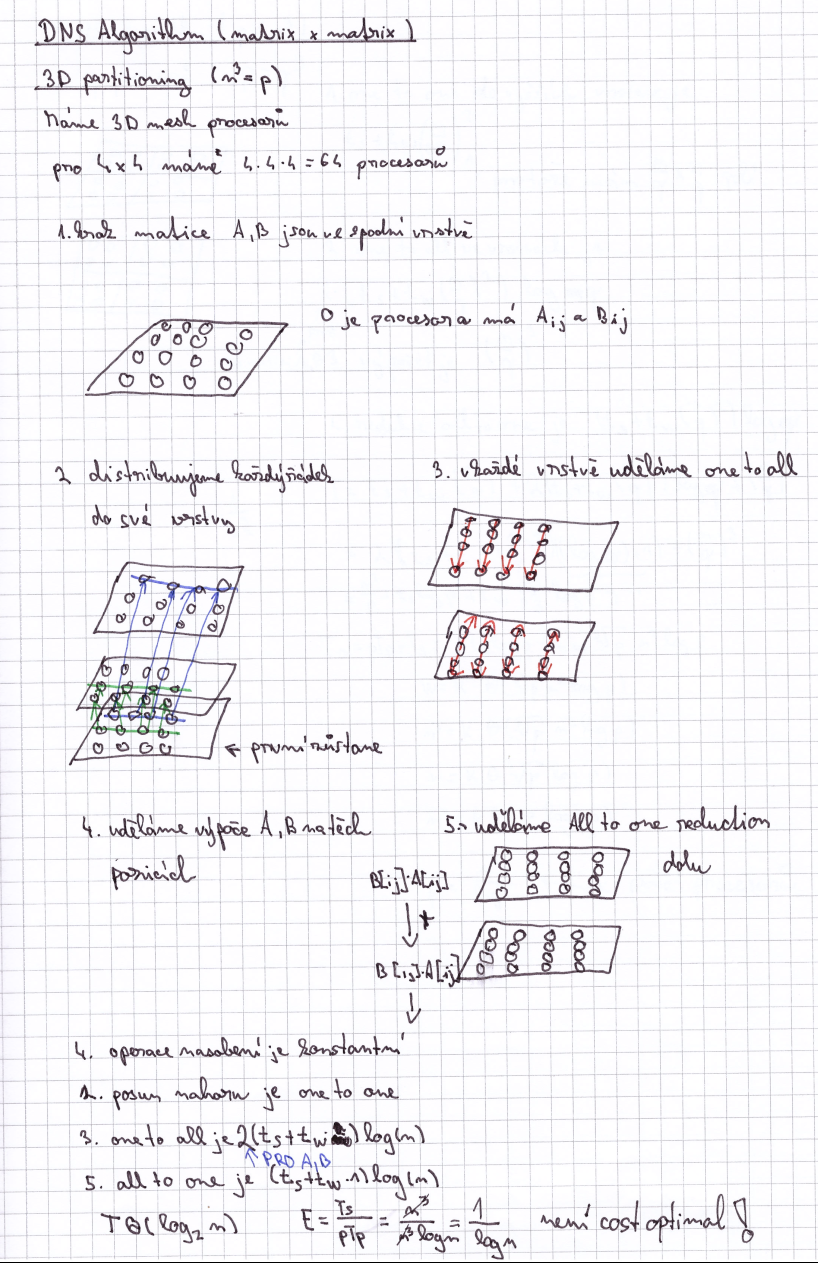 DNS Algorithm (matrix x matrix)
3D partitioning (n³=p)
Máme 3D mesh procesorů
pro 4x4 máme 4.4.4 = 64 procesorů
1. krok matice A,B jsou ve spodní vrstvě
O je procesor a má Aij a Bij
2 distribuujeme každý řádek
do své vrstvy
3. v každé vrstvě uděláme one to all
← první zůstane
4. uděláme výpoče A,B na těch
pozicích
5. uděláme All to one reduction
dolu
B[ij].A[ij]
+
B[ij].A[ij]
4. operace nasobení je konstantní
2. posun nahoru je one to one
3. one to all je 2(ts+tw) log(n)
PRO A,B
5. all to one je (ts+tw.1) log(n)
T Θ(log₂ n) E = Ts/pTp = n³/n³ log n = 1/log n není cost optimal!